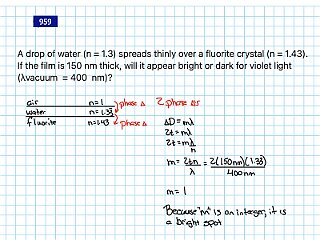 959
A drop of water (n = 1.3) spreads thinly over a fluorite crystal (n = 1.43).
If the film is 150 nm thick, will it appear bright or dark for violet light
(λvacuum = 400 nm)?
air n=1 phase Δ 2 phase Δs
water n=1.33
fluorite n=1.43 phase Δ
ΔD = mλ
2t = mλ
2t = mλ/n
m = 2tn/λ = 2(150nm)(1.33)/400nm
m = 1
Because "m" is an integer, it is
a bright spot